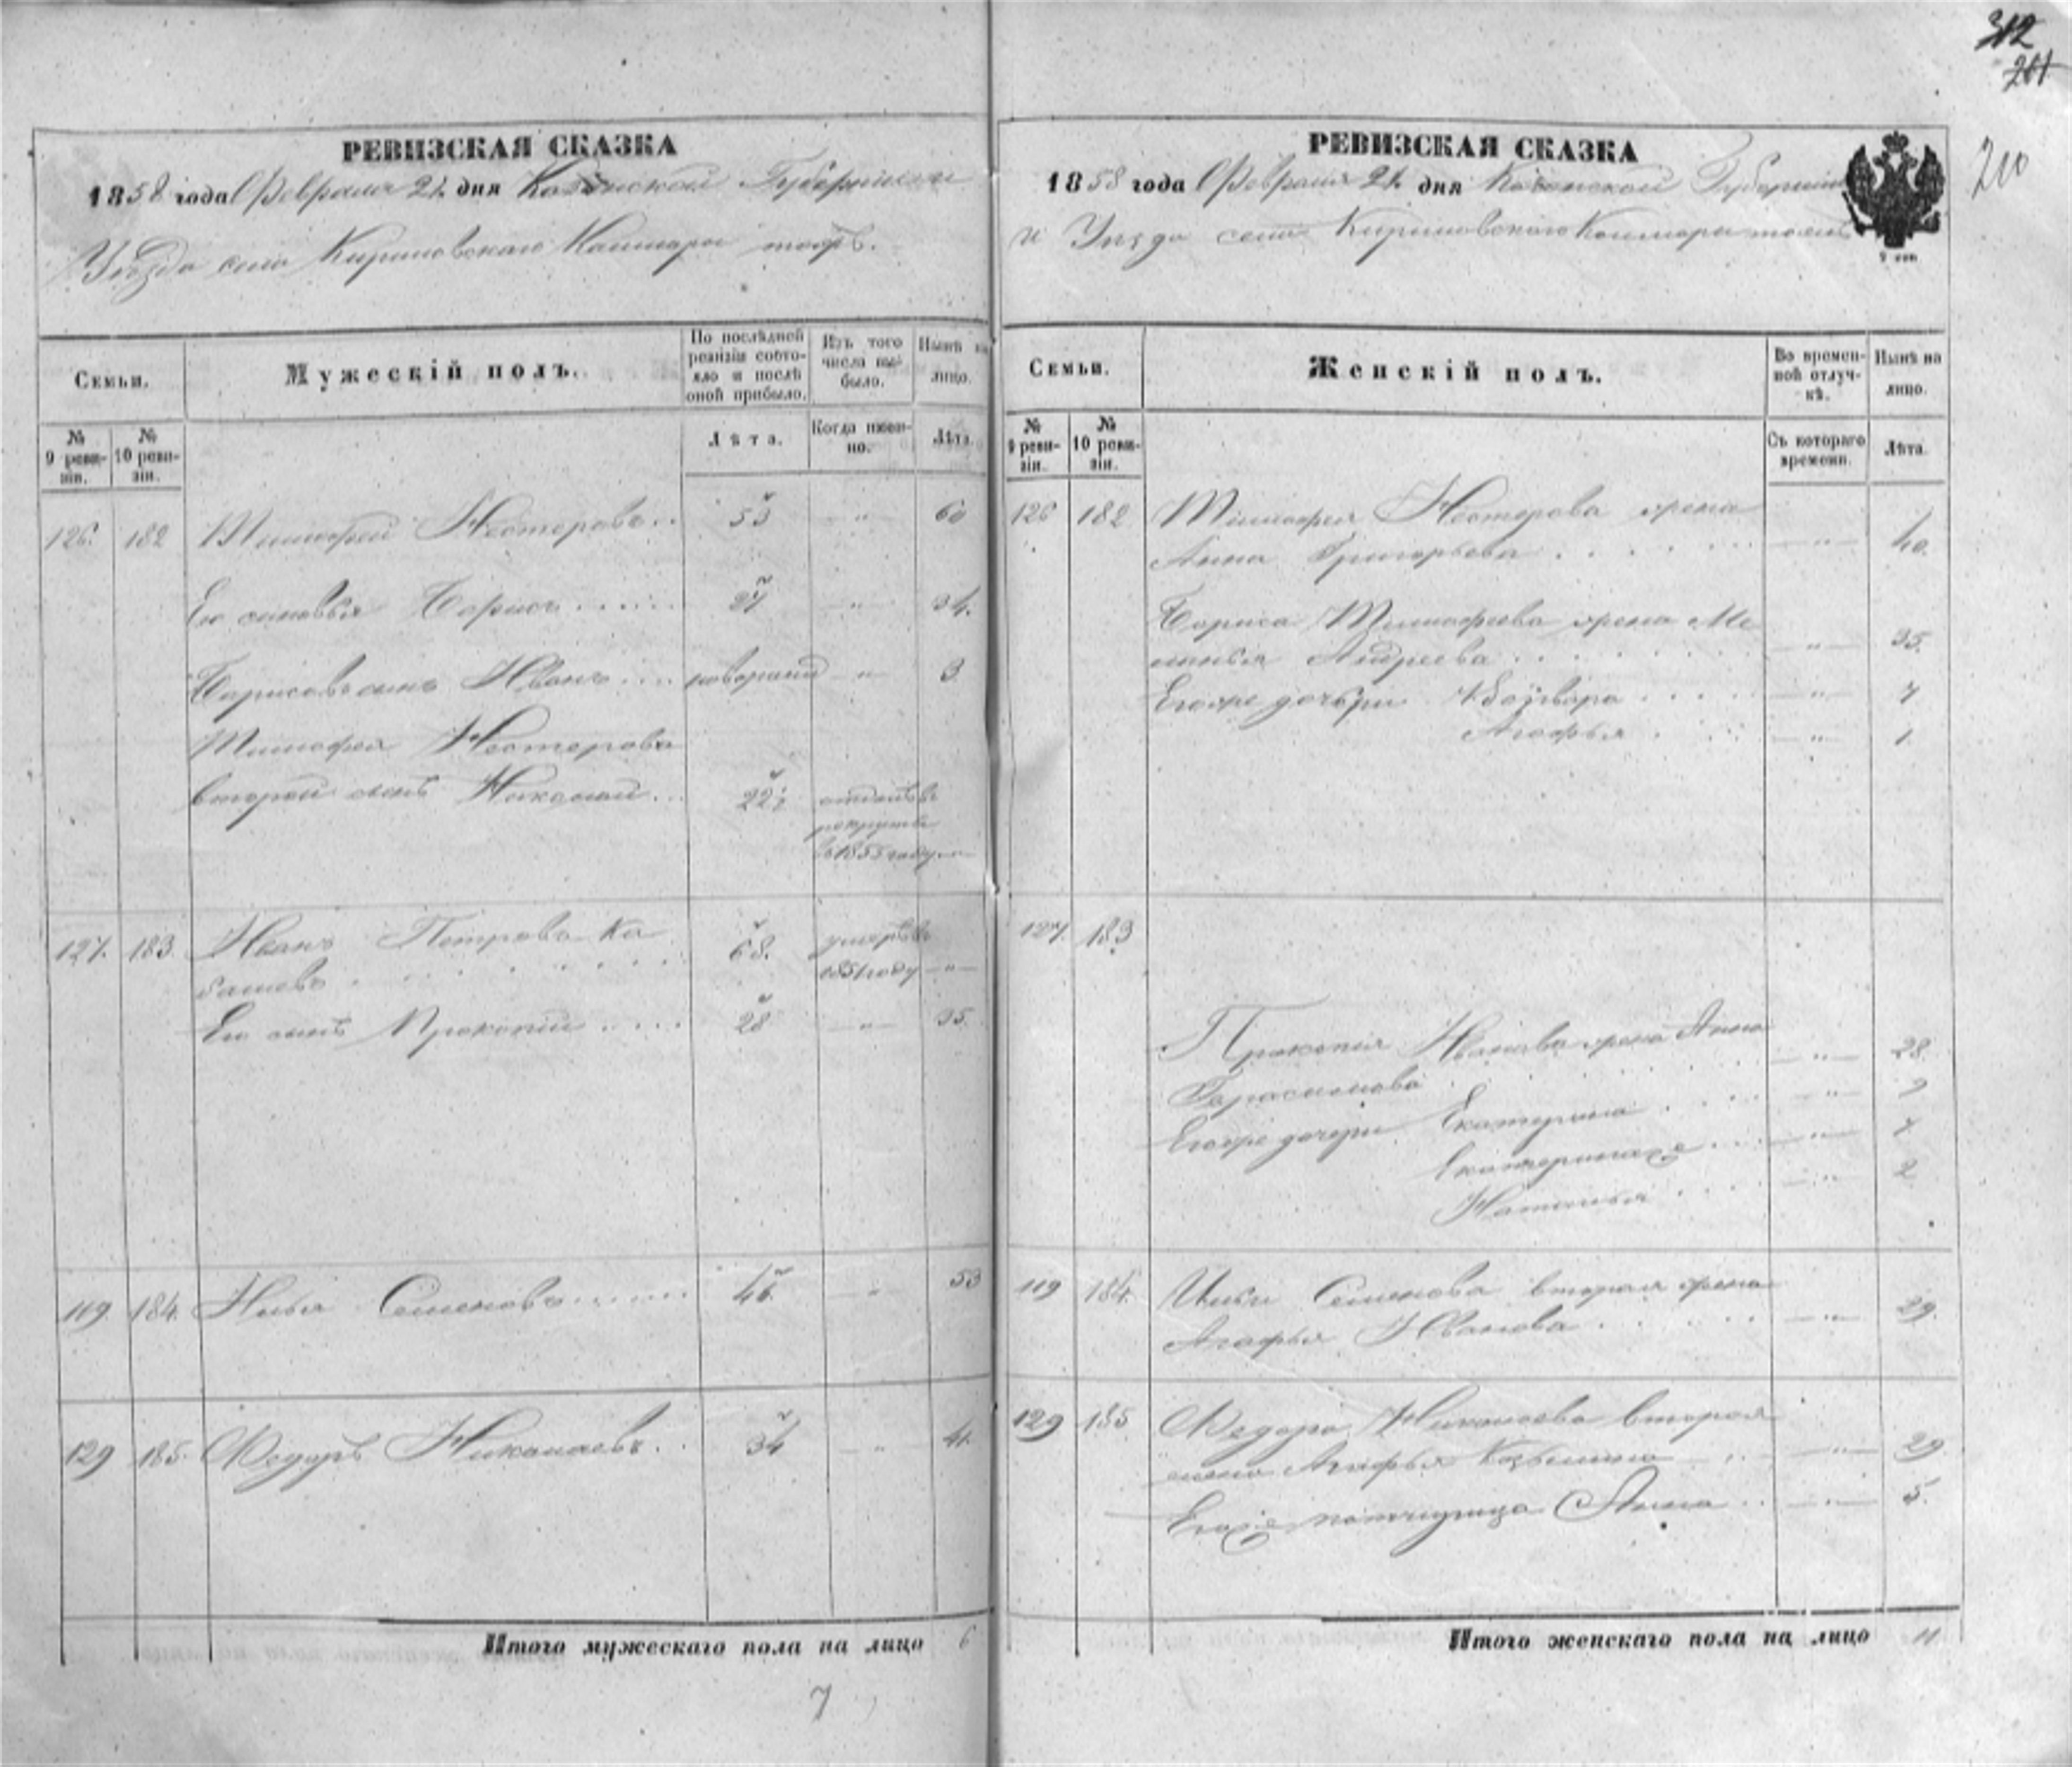 312
201
200
РЕВИЗСКАЯ СКАЗКА
1858 года Февраля 21 дня Казанской Губернии и
Уѣзда села Кириловскаго Кошмары тожъ.
Семьи.
Мужескій полъ.
По послѣдней ревизіи состояло и послѣ оной прибыло.
Изъ того числа выбыло.
Нынѣ на лицо.
№ 9 ревизіи.
№ 10 ревизіи.
Лѣта.
Когда именно.
Лѣта.
126. 182 Тимофей Нестеровъ.. 53 " 60
Его сыновья Борисъ...... 27 " 34.
Борисовъ сынъ Иванъ.... новорожд " 3
Тимофея Нестерова
второй сынъ Николай... 22½ отданъ въ
рекруты
въ 1855 году "
127. 183. Иванъ Петровъ Ка
башевъ 68. умеръ въ
1851 году "
Его сынъ Прокопій ..... 28 " 35.
119. 184. Илья Семеновъ....... 46. " 53
129 185. Ѳедоръ Николаевъ... 34 " 41.
Итого мужескаго пола на лицо 6
7
РЕВИЗСКАЯ СКАЗКА
1858 года Февраля 21 дня Казанской Губерніи
и Уѣзда села Кириловскаго Кошмары тожъ
2 коп
Семьи.
Женскій полъ.
Во временной отлучкѣ.
Нынѣ на лицо.
№ 9 ревизіи.
№ 10 ревизіи.
Съ котораго времени.
Лѣта.
126 182 Тимофея Нестерова жена
Анна Григорьева " 40.
Бориса Тимофеева жена Ме
ланья Андреева " 35.
Егоже дочьри Варвара " 7
Агафья " 1.
127. 183
Прокопія Иванова жена Анна
Герасимова " 28.
Егоже дочери Екатерина " 9
Екатеринаже " 7
Наталья " 2
119 184. Ильи Семенова вторая жена
Агафья Иванова " 29.
129 185. Ѳедора Николаева вторая
жена Агафья Козьмина " 29.
Егоже патчирица Анна " 5.
Итого женскаго пола на лицо 11